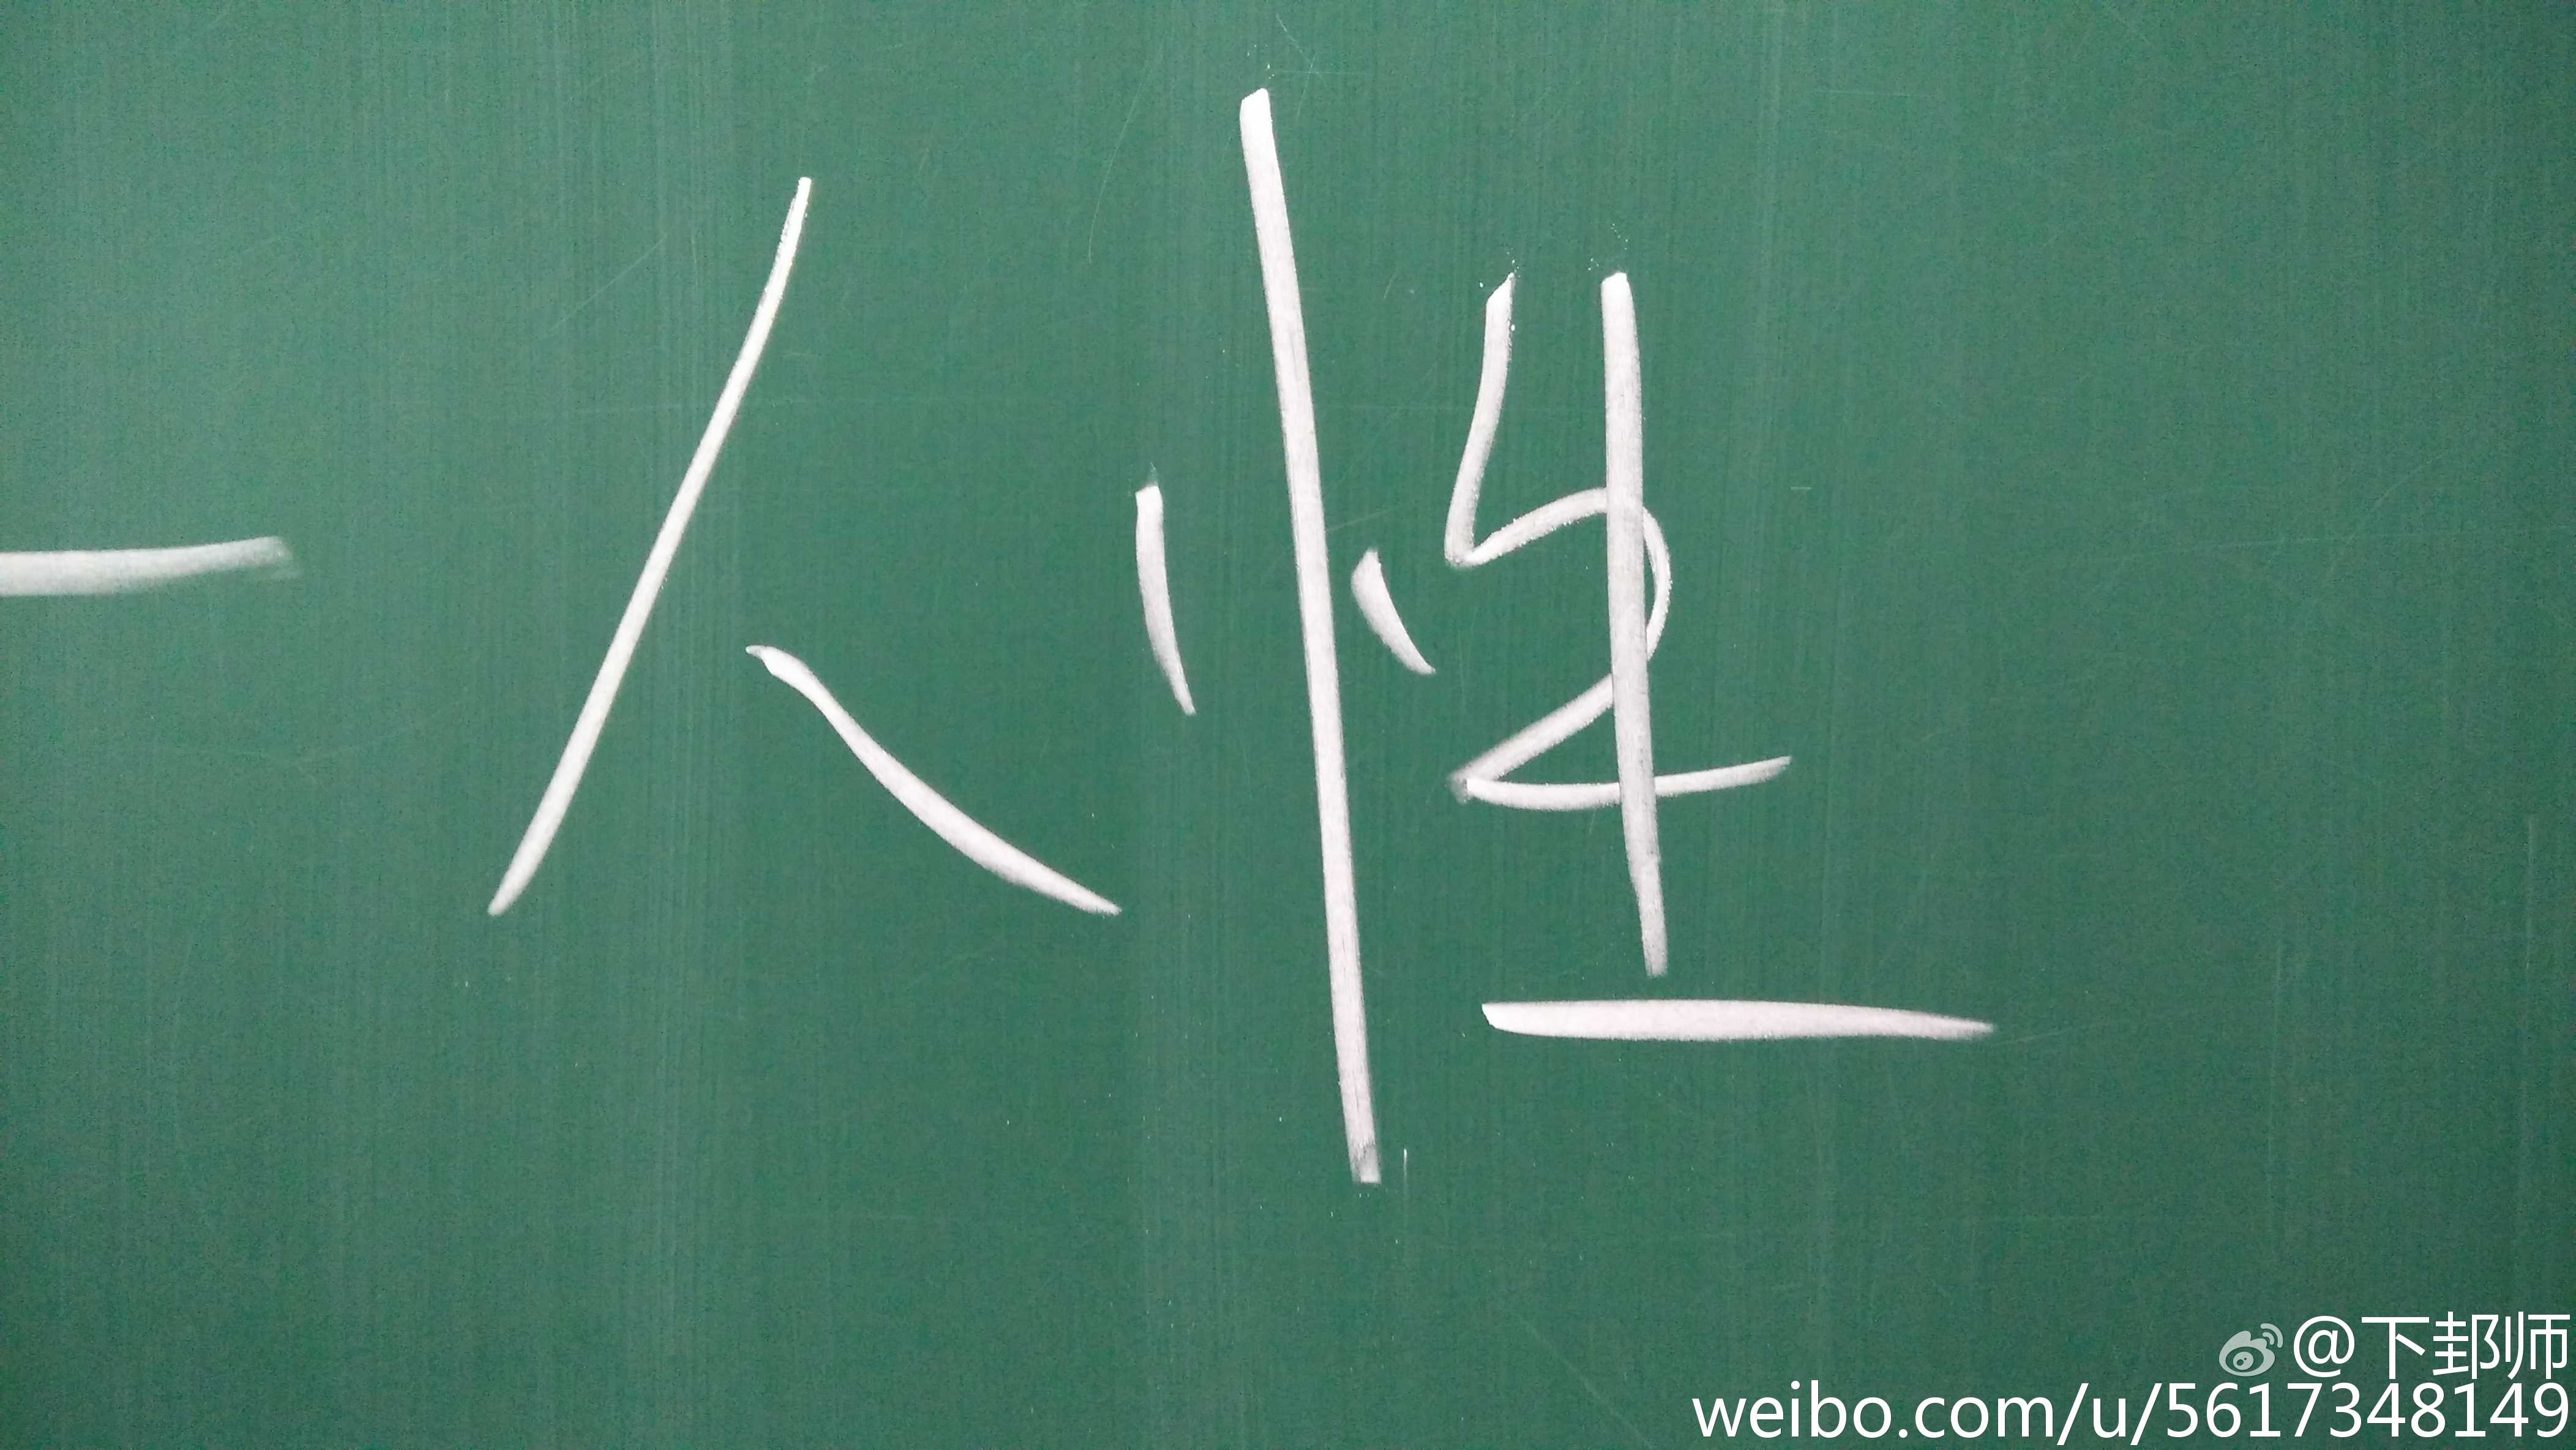 人性
@下邽师
weibo.com/u/5617348149